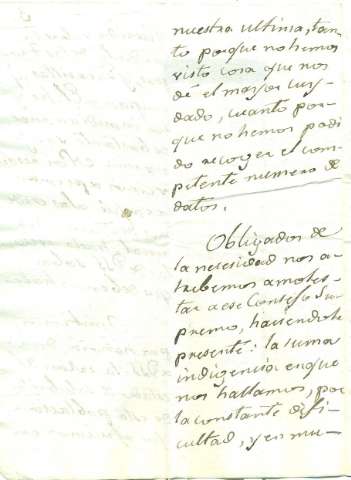 nuestra ultima, tan-
to porque no hemos
visto cosa que nos
dé el mayor cuy-
dado, cuanto por-
que no hemos podi
do recoger el com-
pitente numero de
datos.
Obligados de
la necesidad nos a-
trebemos a moles-
tar a ese Consejo Su-
premo, haciendole
presente: la suma
indigencia en que
nos hallamos, por
la constante difi-
cultad, y en mu-